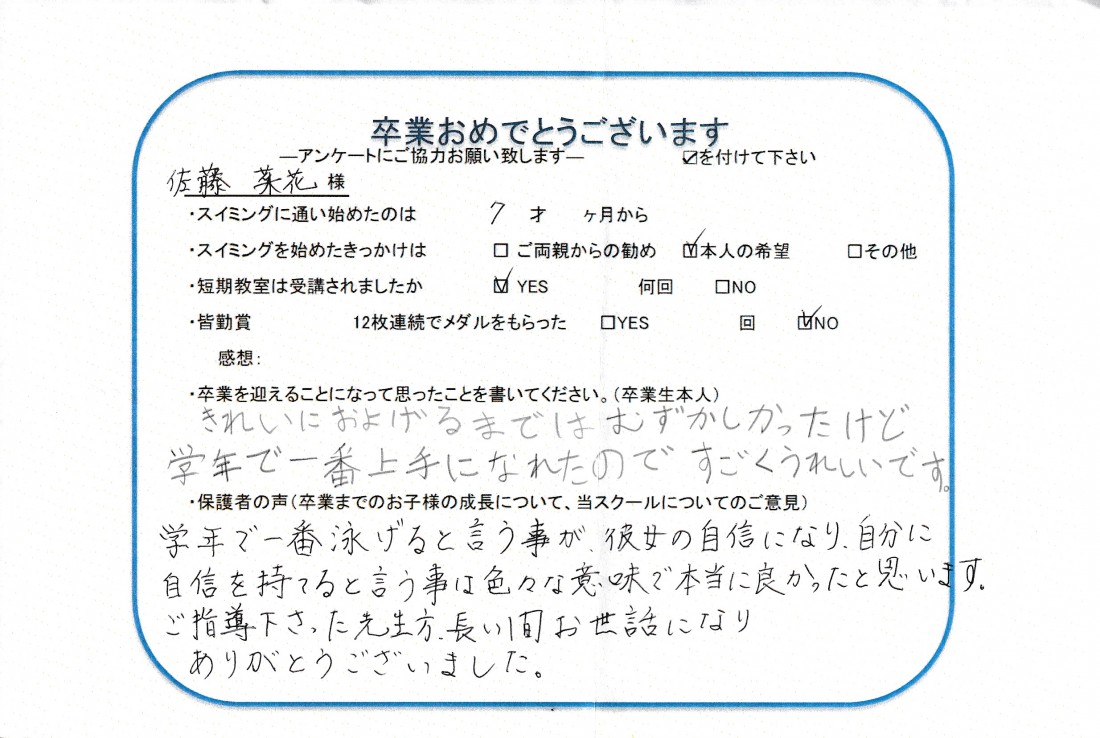 卒業おめでとうございます
―アンケートにご協力お願い致します― ☑を付けて下さい
佐藤 菜花 様
・スイミングに通い始めたのは 7 才 ヶ月から
・スイミングを始めたきっかけは □ ご両親からの勧め ☑本人の希望 □その他
・短期教室は受講されましたか ☑ YES 何回 □NO
・皆勤賞 12枚連続でメダルをもらった □YES 回 ☑NO
感想：
・卒業を迎えることになって思ったことを書いてください。（卒業生本人）
きれいにおよげるまではむずかしかったけど
学年で一番上手になれたのですごくうれしいです。
・保護者の声（卒業までのお子様の成長について、当スクールについてのご意見）
学年で一番泳げると言う事が、彼女の自信になり、自分に
自信を持てると言う事は色々な意味で本当に良かったと思います。
ご指導下さった先生方、長い間お世話になり
ありがとうございました。